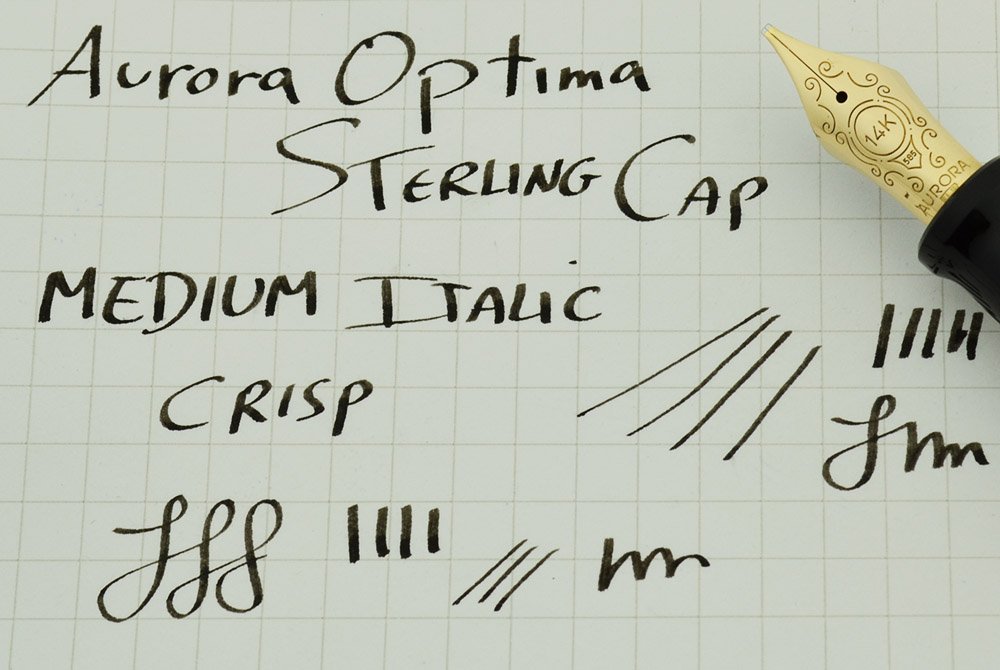 Aurora Optima
Sterling Cap
MEDIUM ITALIC
CRISP
14K
585
AURORA